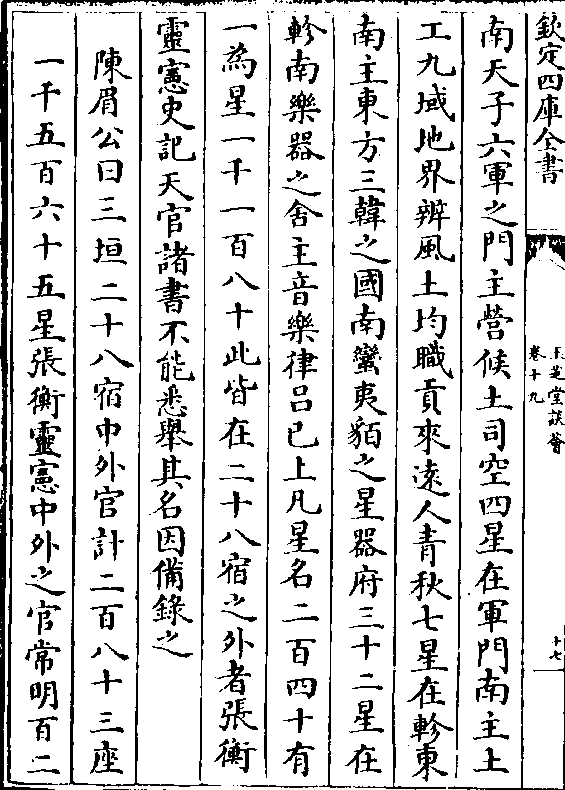 欽定四庫全書
玉芝堂談薈
卷十九
十七
南天子六軍之門主營候土司空四星在軍門南主土
工九域地界辨風土均職貢來遠人青秋七星在軫東
南主東方三韓之國南蠻夷貊之星器府三十二星在
軫南樂器之舍主音樂律呂已上凡星名二百四十有
一為星一千一百八十此皆在二十八宿之外者張衡
靈憲史記天官諸書不能悉舉其名因備錄之
陳眉公曰三垣二十八宿中外官計二百八十三座
一千五百六十五星張衡靈憲中外之官常明百二